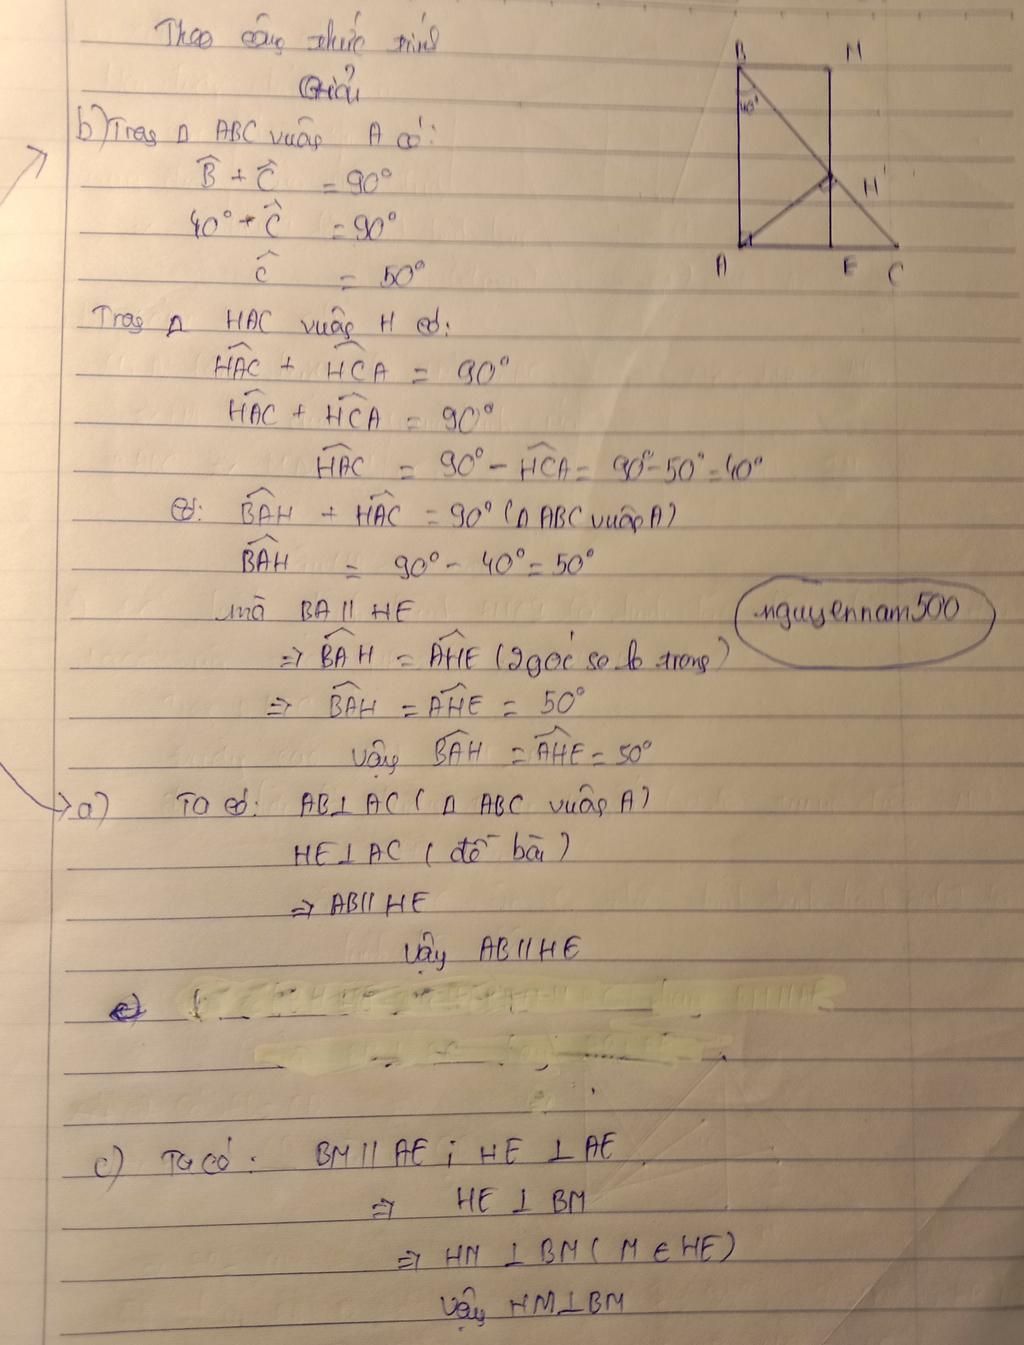 Theo công thức tính
Giải
b) Trog Δ ABC vuôg A có:
B̂ + Ĉ = 90°
40° + Ĉ = 90°
Ĉ = 50°
Trog Δ HAC vuôg H có:
HAC + HCA = 90°
HAC + HCA = 90°
HAC = 90° - HCA = 90° - 50° = 40°
có: BAH + HAC = 90° (Δ ABC vuôg A)
BAH = 90° - 40° = 50°
mà BA // HE
nguyennam500
=> BAH = AHE (2 góc so le trong)
=> BAH = AHE = 50°
Vậy BAH = AHE = 50°
a) Ta có: AB ⊥ AC (Δ ABC vuôg A)
HE ⊥ AC (đề bài)
=> AB // HE
Vậy AB // HE
c) Ta có: BM // AE ; HE ⊥ AE
=> HE ⊥ BM
=> HM ⊥ BM (M ∈ HE)
Vậy HM ⊥ BM
B M
40°
H
A E C